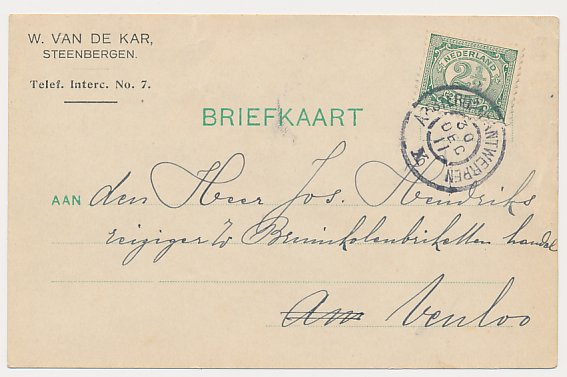 W. VAN DE KAR,
STEENBERGEN.
Telef. Interc. No. 7.
NEDERLAND
2½
ANTWERPEN
30 DEC 11
BRIEFKAART
AAN den Heer Jos. Hendriks
reiziger Bruinkolenbriketten handel
Venloo